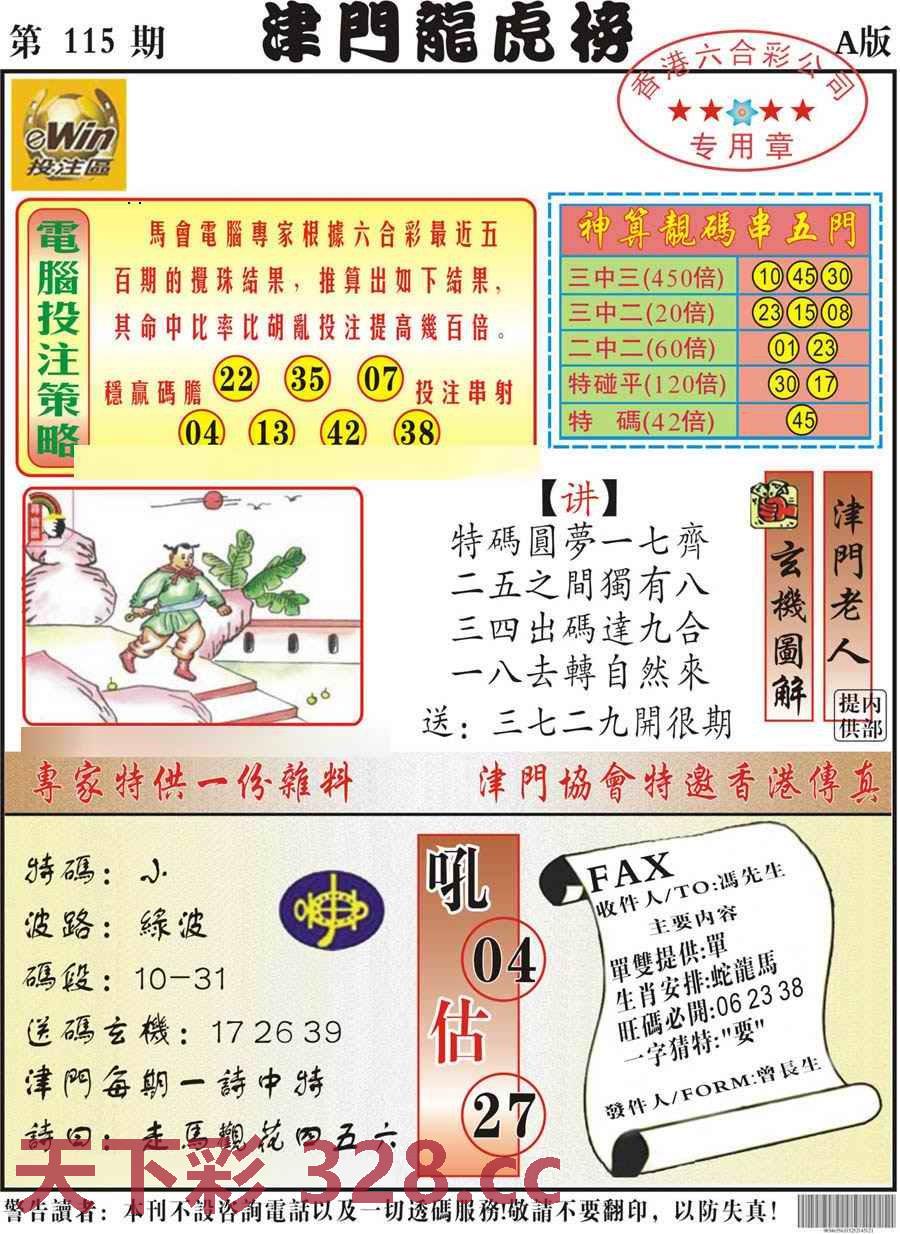 第 115 期
津門龍虎榜
A版
香港六合彩公司
专用章
eWin
投注區
電腦投注策略
馬會電腦專家根據六合彩最近五
百期的攪珠結果，推算出如下結果，
其命中比率比胡亂投注提高幾百倍。
穩贏碼膽 22 35 07 投注串射
04 13 42 38
神算靚碼串五門
三中三(450倍) 10 45 30
三中二(20倍) 23 15 08
二中二(60倍) 01 23
特碰平(120倍) 30 17
特 碼(42倍) 45
【讲】
特碼圓夢一七齊
二五之間獨有八
三四出碼達九合
一八去轉自然來
送：三七二九開很期
玄機圖解
津門老人
内部提供
專家特供一份雜料
津門協會特邀香港傳真
特碼：小
波路：綠波
碼段：10-31
送碼玄機：17 26 39
津門每期一詩中特
詩曰：走馬觀花四五六
吼
04
估
27
FAX
收件人/TO:馮先生
主要内容
單雙提供:單
生肖安排:蛇龍馬
旺碼必開:06 23 38
一字猜特:"要"
發件人/FORM:曾長生
天下彩 328.cc
警告讀者：本刊不設咨詢電話以及一切透碼服務!敬請不要翻印，以防失真!